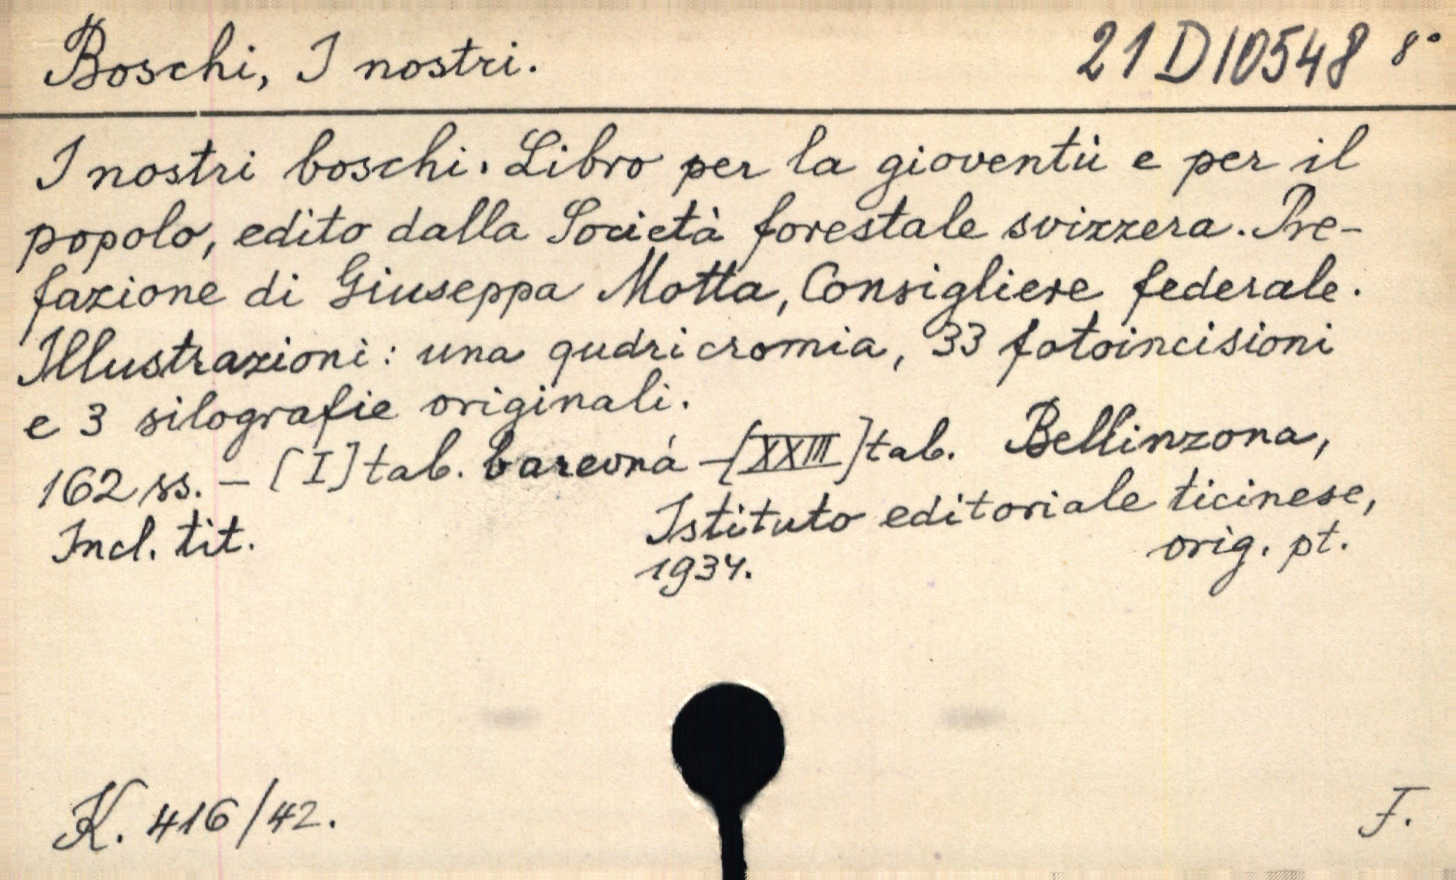 Boschi, I nostri. 21 D 10548 8°
I nostri boschi. Libro per la gioventù e per il
popolo, edito dalla Società forestale svizzera. Pre-
fazione di Giuseppa Motta, Consigliere federale.
Illustrazioni: una qudricromia, 33 fotoincisioni
e 3 silografie originali.
162 ss. – [I] tab. barevná – [XXIII] tab. Bellinzona,
Istituto editoriale ticinese,
Incl. tit.
1934. orig. pt.
K. 416/42. F.